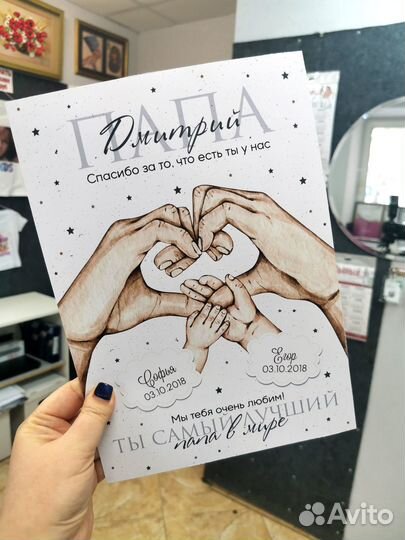 ПАПА
Дмитрий
Спасибо за то, что есть ты у нас
Софья
03.10.2018
Егор
03.10.2018
Мы тебя очень любим!
ТЫ САМЫЙ ЛУЧШИЙ
папа в мире
Avito